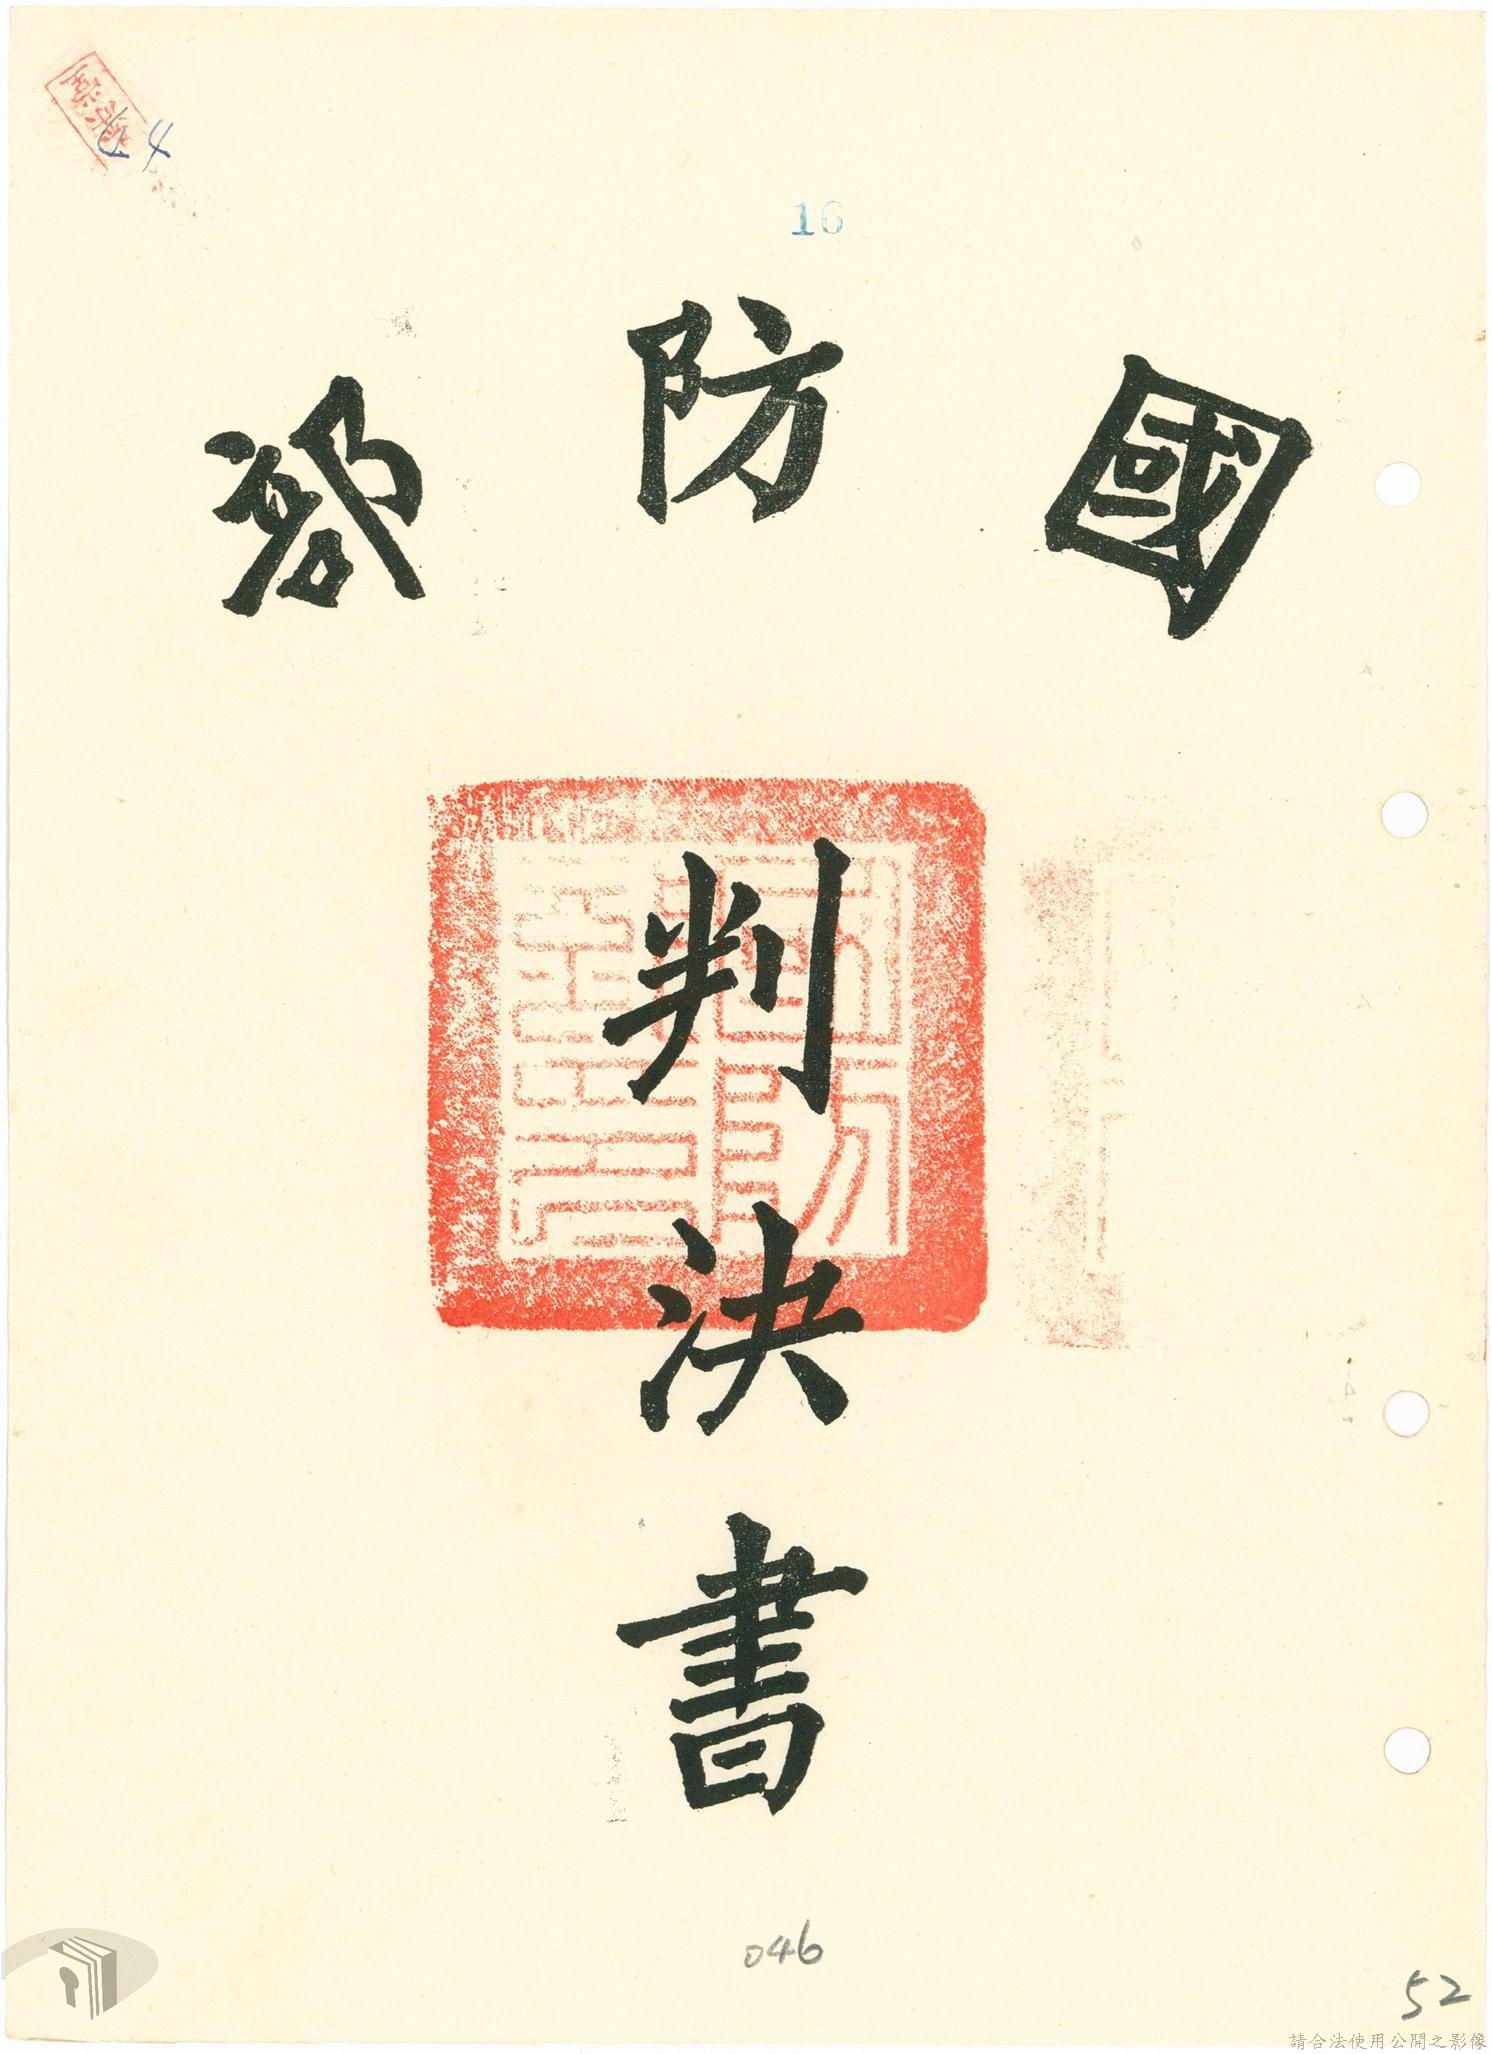 64
16
國防部
判決書
046
52
請合法使用公開之影像